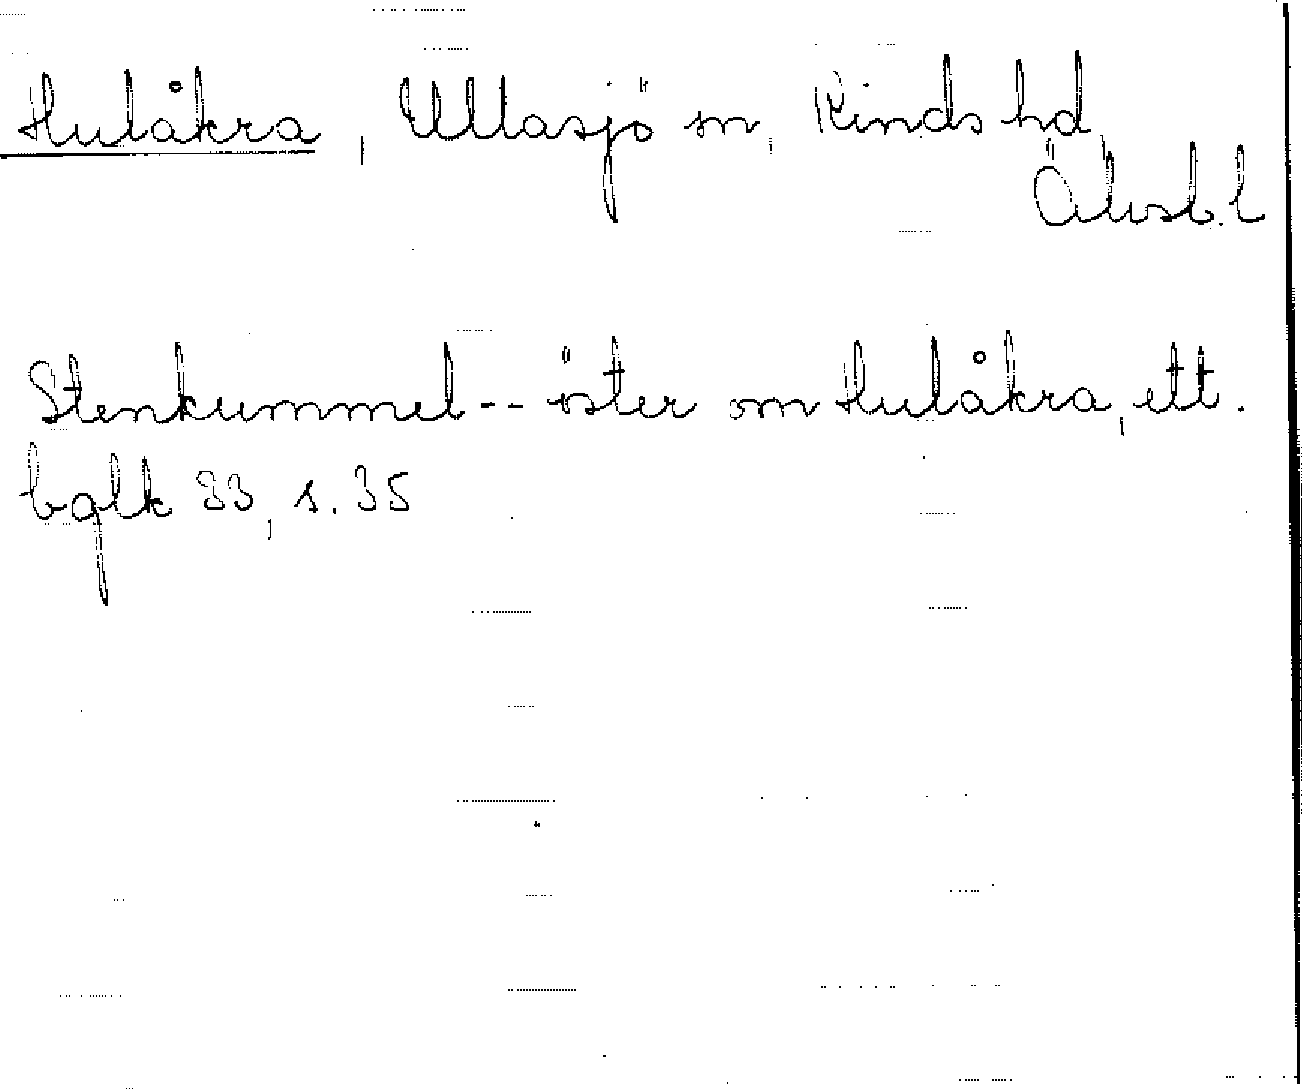 Hulåkra, Ullasjö sn, Kinds hd,
Älvsb. l
Stenkummel -- öster om Hulåkra, ett.
bglk 33, s. 35